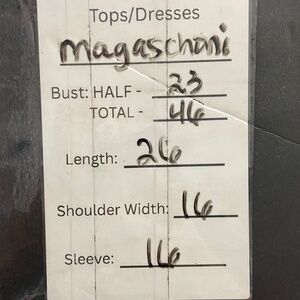 Tops/Dresses
magaschoni
Bust: HALF - 23
TOTAL - 46
Length: 26
Shoulder Width: 16
Sleeve: 16